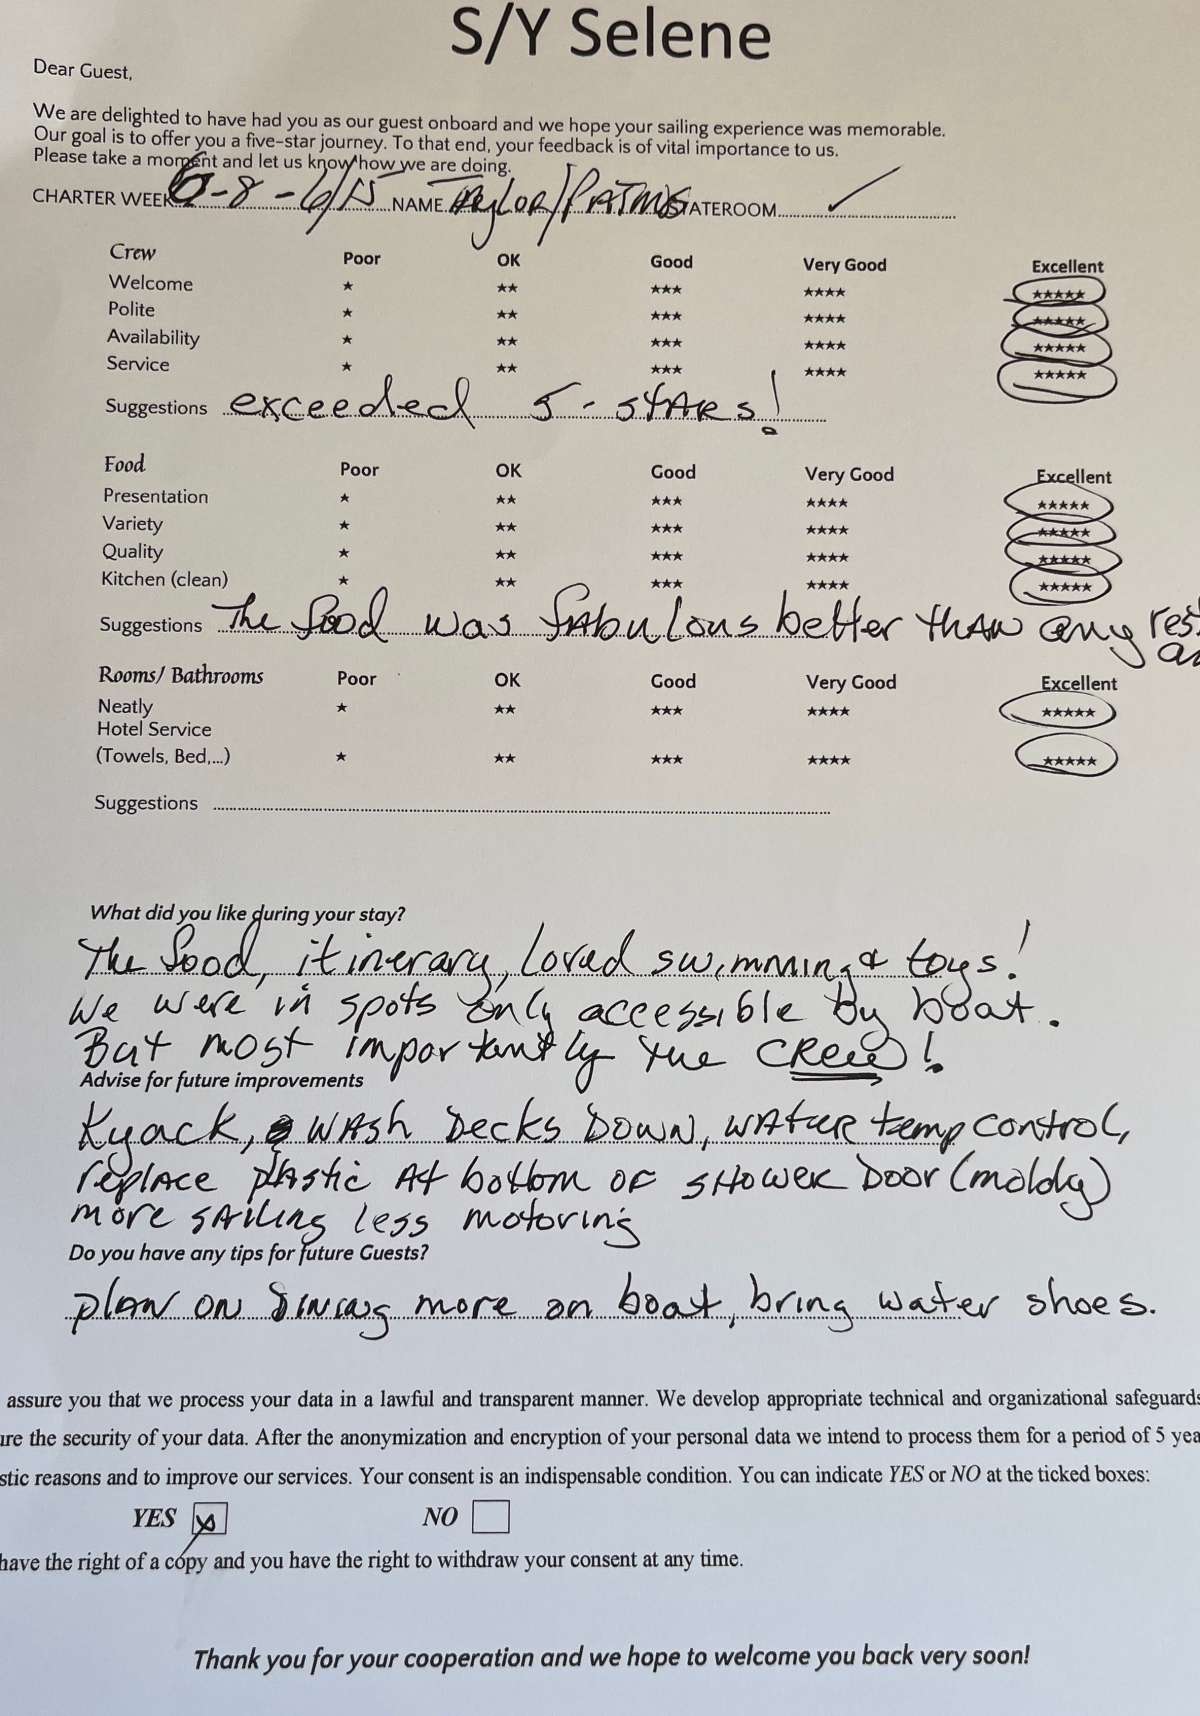 S/Y Selene
Dear Guest,
We are delighted to have had you as our guest onboard and we hope your sailing experience was memorable.
Our goal is to offer you a five-star journey. To that end, your feedback is of vital importance to us.
Please take a moment and let us know how we are doing.
CHARTER WEEK 6-8 - 6/15 NAME Taylor/Patmus STATEROOM ✓
Crew Poor OK Good Very Good Excellent
Welcome ★ ★★ ★★★ ★★★★ ★★★★★
Polite ★ ★★ ★★★ ★★★★ ★★★★★
Availability ★ ★★ ★★★ ★★★★ ★★★★★
Service ★ ★★ ★★★ ★★★★ ★★★★★
Suggestions exceeded 5-stars!
Food Poor OK Good Very Good Excellent
Presentation ★ ★★ ★★★ ★★★★ ★★★★★
Variety ★ ★★ ★★★ ★★★★ ★★★★★
Quality ★ ★★ ★★★ ★★★★ ★★★★★
Kitchen (clean) ★ ★★ ★★★ ★★★★ ★★★★★
Suggestions The food was fabulous better than any
Rooms/ Bathrooms Poor OK Good Very Good Excellent
Neatly ★ ★★ ★★★ ★★★★ ★★★★★
Hotel Service
(Towels, Bed,...) ★ ★★ ★★★ ★★★★ ★★★★★
Suggestions
What did you like during your stay?
The food, itinerary, loved swimming & toys!
We were in spots only accessible by boat.
But most importantly the CREW!
Advise for future improvements
Kyack, wash decks down, water temp control,
replace plastic at bottom of shower door (moldy)
more sailing less motoring
Do you have any tips for future Guests?
plan on dining more on boat, bring water shoes.
assure you that we process your data in a lawful and transparent manner. We develop appropriate technical and organizational safeguards
the security of your data. After the anonymization and encryption of your personal data we intend to process them for a period of 5
reasons and to improve our services. Your consent is an indispensable condition. You can indicate YES or NO at the ticked boxes:
YES x NO
have the right of a copy and you have the right to withdraw your consent at any time.
Thank you for your cooperation and we hope to welcome you back very soon!